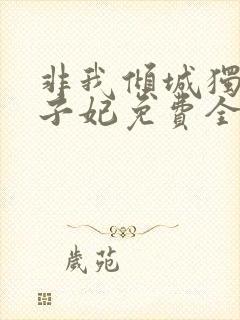 非我傾城獨
子妃免費全
歲苑